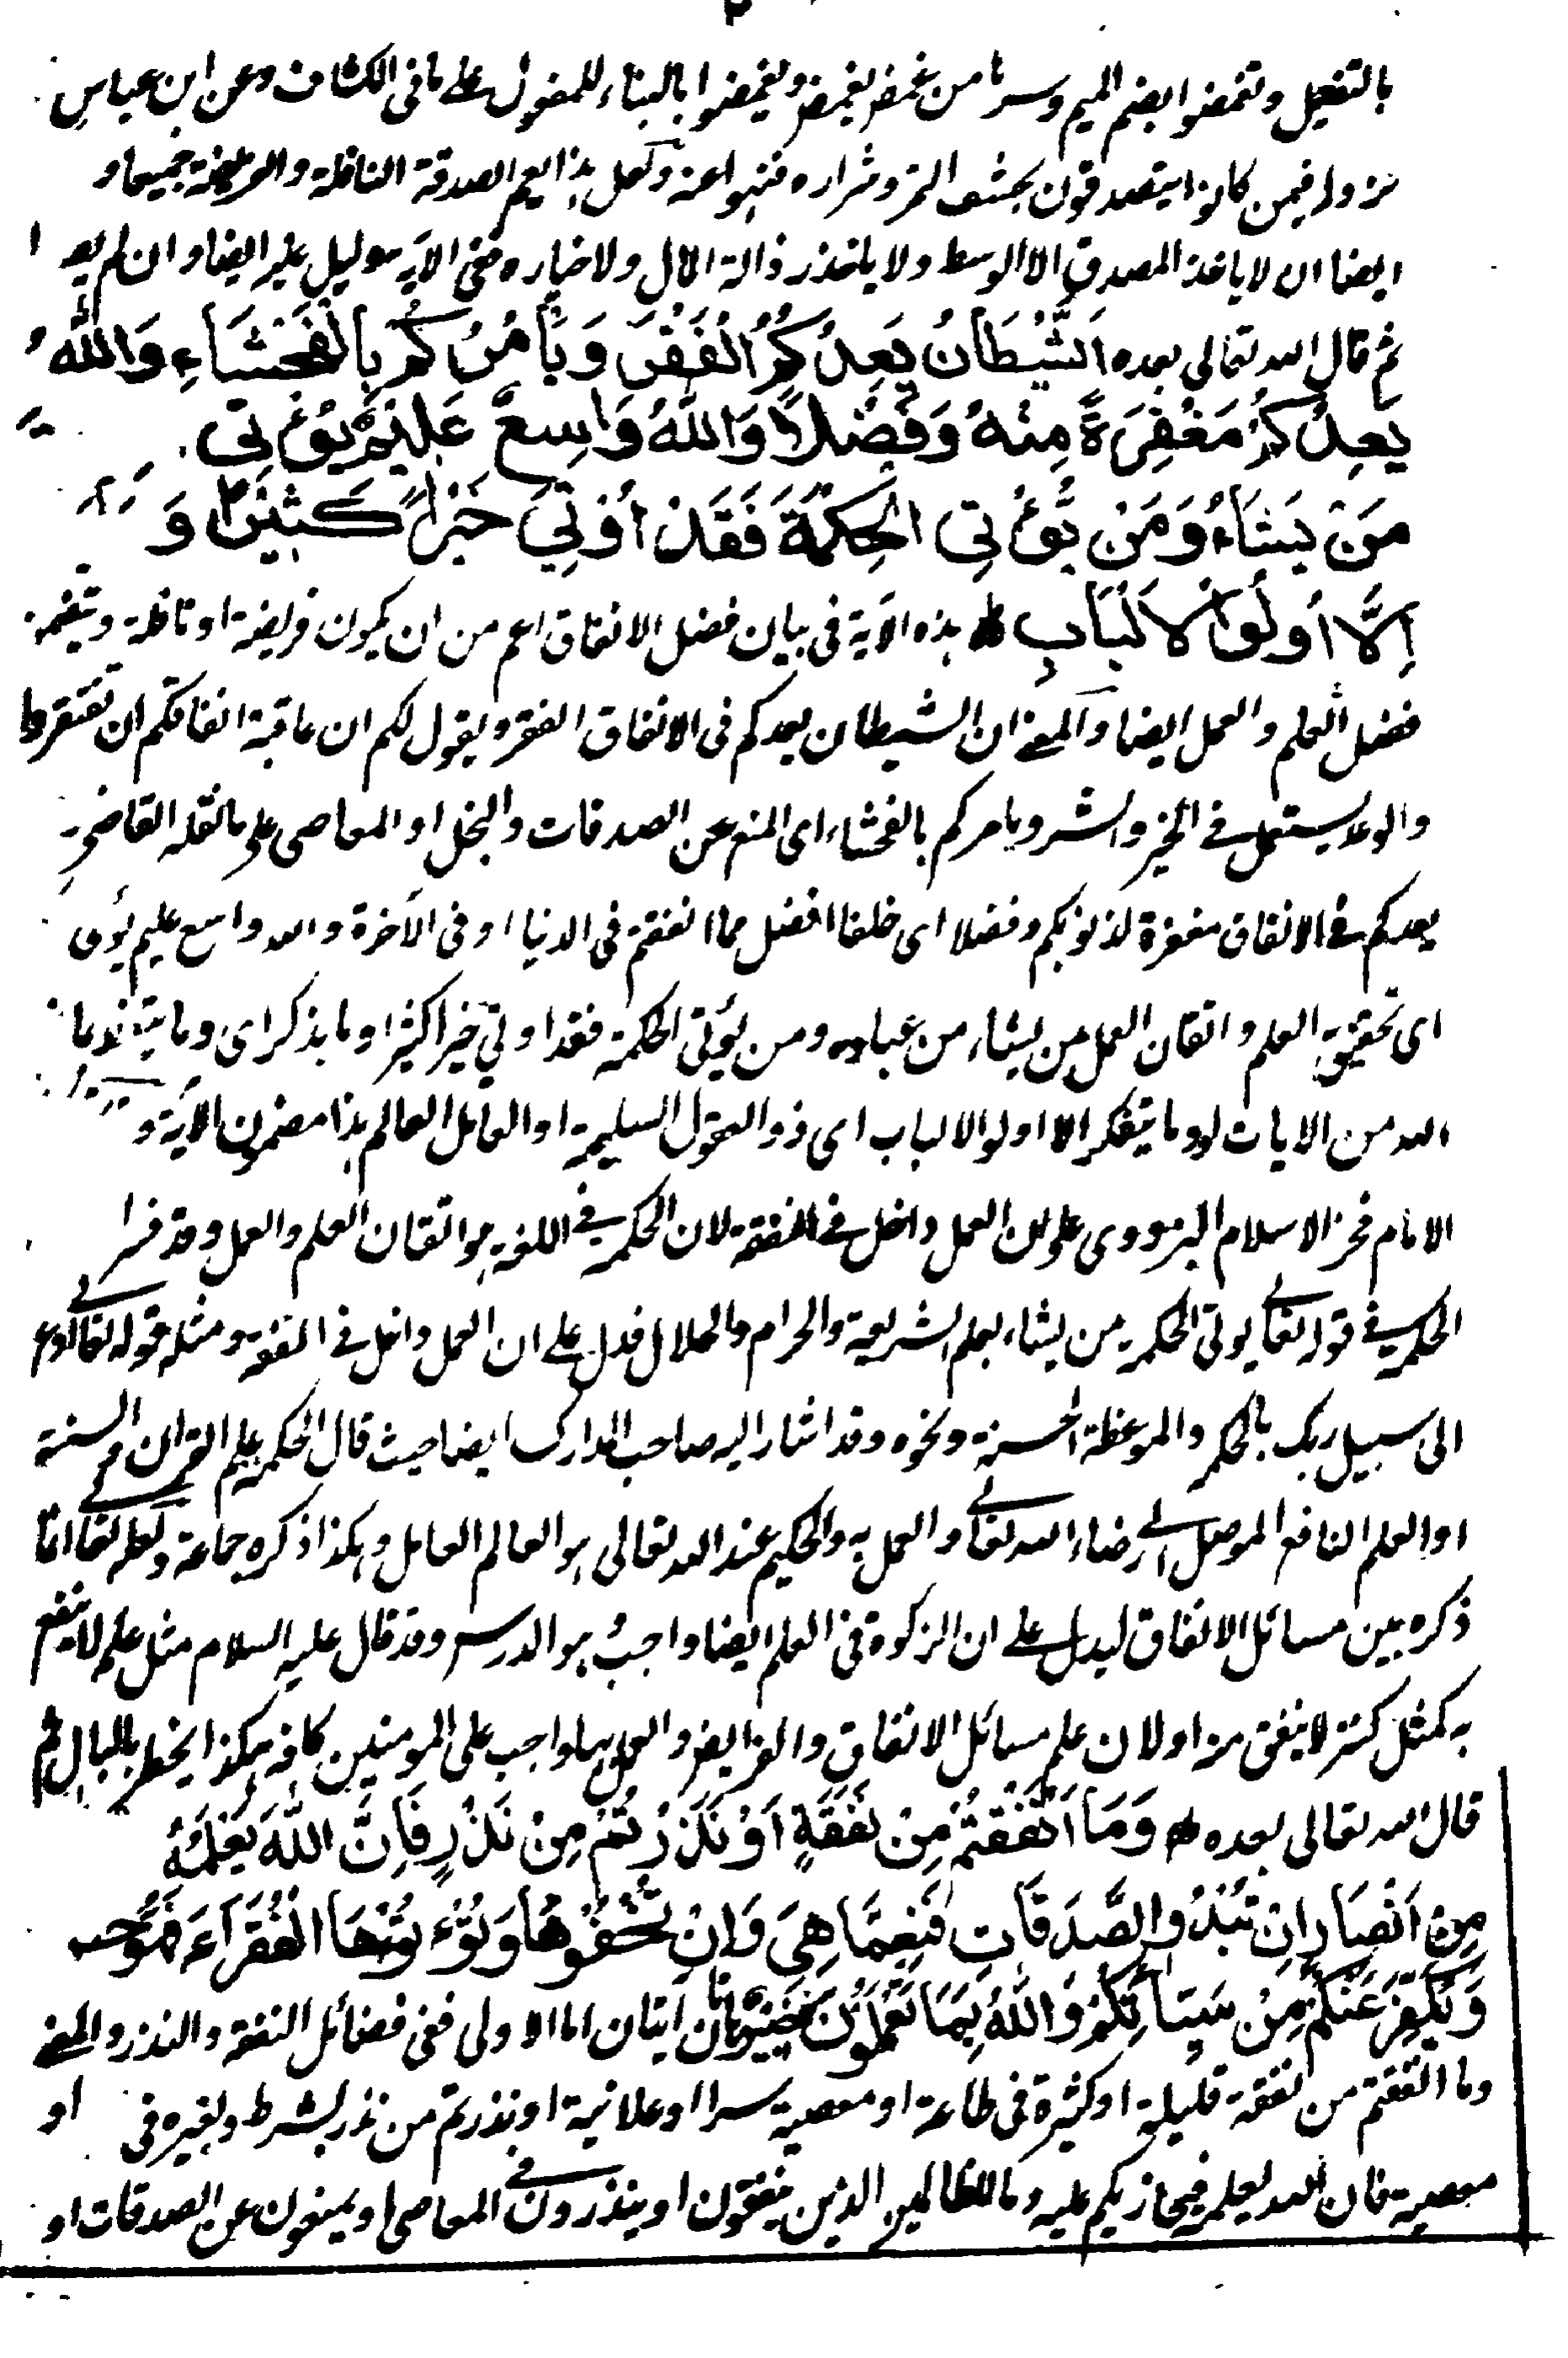 بالتفعيل وتغمضوا بضم الميم وسرها من غمض يغمض وتغمضوا بالبناء للمفعول على ما فى الكشاف وعن ابن عباس
نزوله فيمن كانوا يتصدقون بحشف التمر وشراره فنهوا عنه ولعل هذا يعم الصدقة النافلة والفريضة جميعا و
ايضا ان لا ياخذ المصدق الا الوسط ولا ياخذ رذالة المال ولا خياره ففى الاية دليل عليه ايضا وان لم
ثم قال الله تعالى بعده اَلشَّيْطَانُ يَعِدُكُمُ الْفَقْرَ وَيَأْمُرُكُمْ بِالْفَحْشَاءِ وَاللهُ
يَعِدُكُمْ مَغْفِرَةً مِنْهُ وَفَضْلاً وَاللهُ وَاسِعٌ عَلِيْمٌ يُؤْتِى
مَنْ يَشَاءُ وَمَنْ يُّؤْتِى الْحِكْمَةَ فَقَدْ اُوْتِيَ خَيْراً كَثِيْرًا وَ
اِلَّا اُولُوا الْاَلْبَابِ هذه الآية فى بيان فضل الانفاق اعم من ان يكون فريضة او نافلة وتتضمن
فضل العلم والعمل ايضا والمعنے ان الشيطان يعدكم فى الانفاق الفقر ويقول لكم ان عاقبة انفاقكم ان تفتقروا
والوعد يستعمل فے الخير والشر ويامركم بالفحشاء اى المنع عن الصدقات والبخل او المعاصى على ما نقله القاضى
يعدكم فے الانفاق مغفرة لذنوبكم وفضلا اى خلفا افضل مما انفقتم فى الدنيا او فى الآخرة والله واسع عليم يؤتى
اى تحقيق العلم واتقان العمل من يشاء من عباده ومن يؤتى الحكمة فقد اوتى خيرا كثيرا وما يذكر اى وما يتعظ بما
الله من الايات او وما يتفكر الا اولوا الالباب اى ذوو العقول السليمة او العامل العالم هذا مضمون الآية و
الامام فخر الاسلام البزدوى على ان العمل داخل فے الفقه لان الحكمة فے اللغة هو اتقان العلم والعمل وقد فسر ا
الحكمة فے قوله تعالے يوتى الحكمة من يشاء بعلم الشريعة والحرام والحلال فدل على ان العمل داخل فے الفقه ومثله قوله تعالے ادع
الى سبيل ربك بالحكمة والموعظة الحسنة ونحوه وقد اشار اليه صاحب المدارك ايضا حيث قال الحكمة علم القرآن والسنة
او العلم النافع الموصل الے رضاء الله تعالے والعمل به والحكيم عند الله تعالى هو العالم العامل وهكذا ذكره جماعة ولعله تعالے انما
ذكره بين مسائل الانفاق ليدل على ان الزكوة فى العلم ايضا واجب وهو الدرس وقد قال عليه السلام مثل علم لا ينتفع
به كمثل كنز لا ينفق منه او لان علم مسائل الانفاق والفرايض والعمل بها واجب على المومنين كافة هكذا يخطر بالبال ثم
قال الله تعالى بعده وَمَا اَنْفَقْتُمْ مِنْ نَفَقَةٍ اَوْ نَذَرْتُمْ مِنْ نَذْرٍ فَاِنَّ اللهَ يَعْلَمُهُ
مِنْ اَنْصَارٍ اِنْ تُبْدُوا الصَّدَقَاتِ فَنِعِمَّا هِيَ وَاِنْ تُخْفُوْهَا وَتُؤْتُوْهَا الْفُقَرَآءَ فَهُوَ خَيْرٌ
وَيُكَفِّرُ عَنْكُمْ مِنْ سَيِّئَاتِكُمْ وَاللهُ بِمَا تَعْمَلُوْنَ خَبِيْرٌ هاتان ايتان اما الاولى ففى فضائل النفقة والنذر والمعنے
وما انفقتم من نفقة قليلة او كثيرة فى طاعة او معصية سرا او علانية او نذرتم من نذر بشرط وبغيره فى او
معصية فان الله يعلمه فيجازيكم عليه وما للظالمين الذين ينفقون او ينذرون فے المعاصى او يمنعون عن الصدقات او